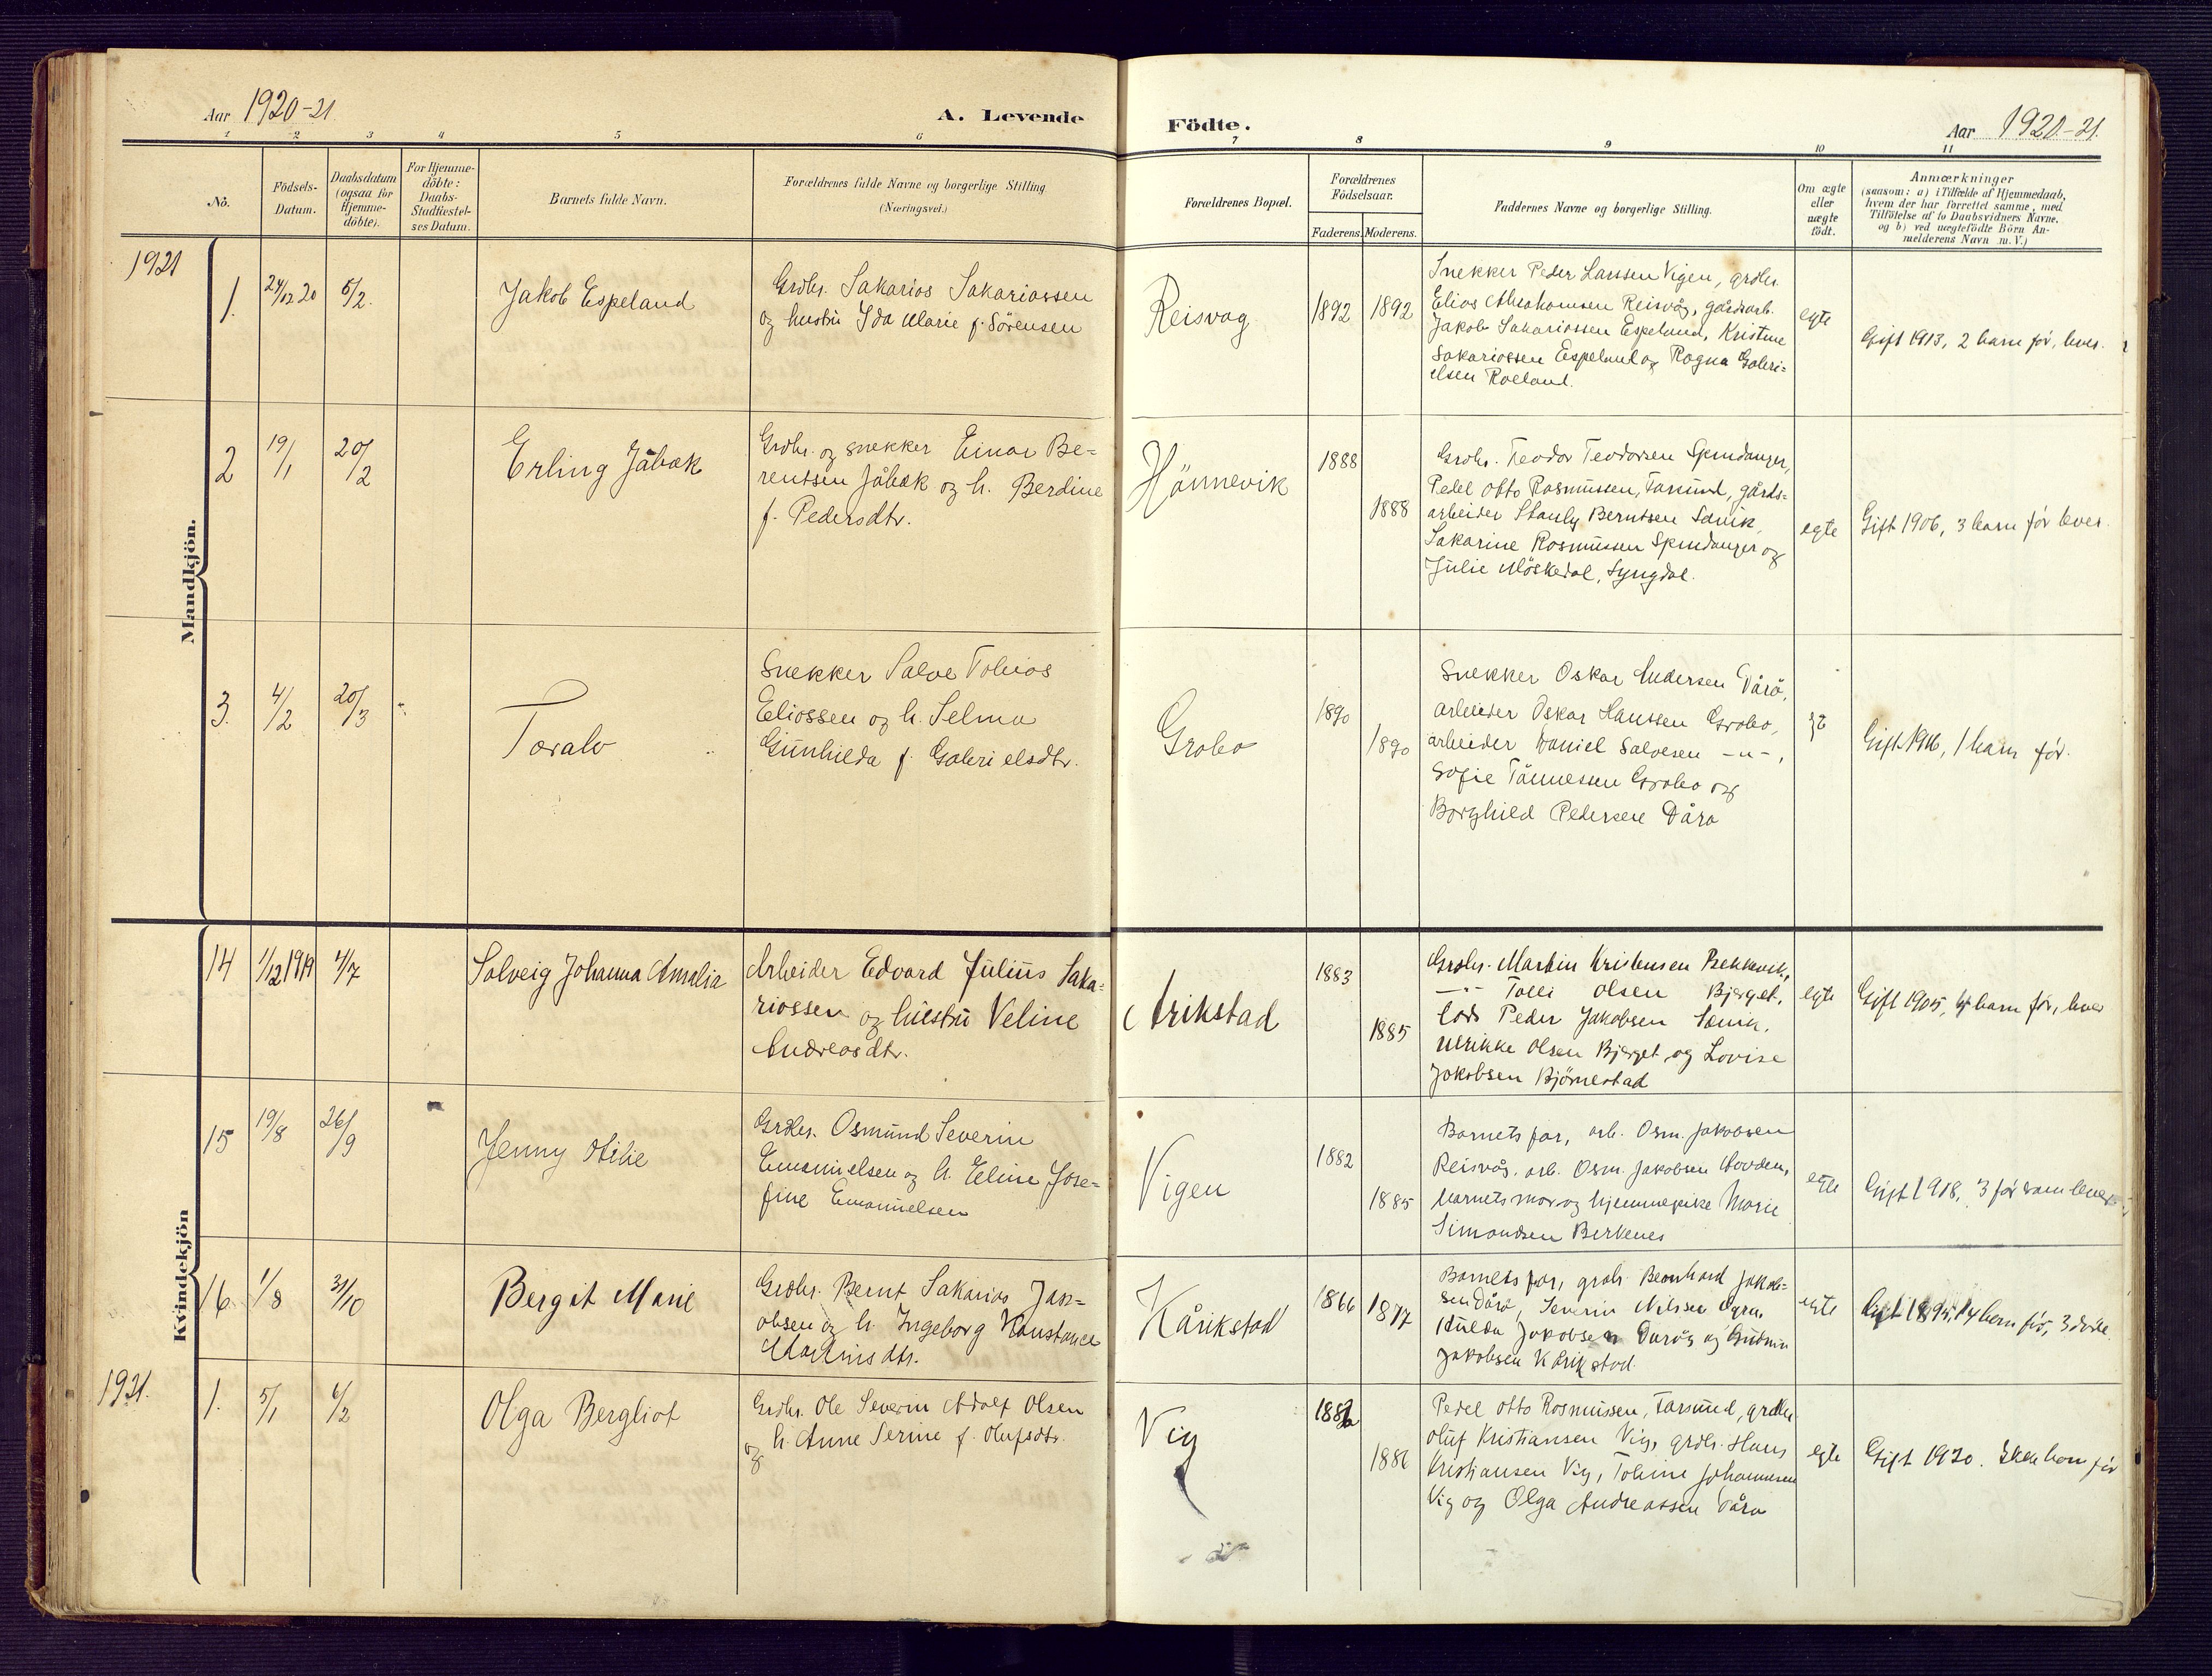 Aar 1920-21
A. Levende
Födte.
Aar 1920-21.
1 2 3 4 5 6 7 8 9 10 11
No.
Födsels-
Datum.
Daabsdatum
(ogsaa for
Hjemme-
döbte).
For Hjemme-
döbte:
Daabs-
Stadfæstel-
ses Datum.
Barnets fulde Navn.
Forældrenes fulde Navne og borgerlige Stilling
(Næringsvei.)
Forældrenes Bopæl.
Forældrenes
Födselsaar.
Faderens. Moderens.
Faddernes Navne og borgerlige Stilling.
Om ægte
eller
uægte
födt.
Anmærkninger
(saasom: a) i Tilfælde af Hjemmedaab,
hvem der har forrettet samme, med
Tilföielse af to Daabsvidners Navne.
og b) ved uægtefödte Börn An-
melderens Navn m. V.)
Mandkjön.
1921
1. 24/12 20 6/2.
Jakob Espeland
Grdbr. Sakarias Sakariassen
og hustru Ida Marie f. Sörensen
Reisvag
1892 1892
Snekker Peder Larssen Vigen, grdbr.
Elias Abrahamsen Reisvåg, gårdsarb.
Jakob Sakariassen Espeland, Kristine
Sakariassen Espeland og Ragna Gabri-
elsen Roeland.
egte
Gift 1913, 2 barn før, lever.
2 19/1 20/2
Erling Jåbæk
Grdbr. og snekker Einar Be-
rentsen Jåbæk og h. Berdine
f. Pedersdtr.
Hännevik
1888
1888
Grdbr. Teodor Teodorsen Spindanger,
Pedel Otto Rasmussen, Farsund, gårds-
arbeider Stanly Berntsen Sävik,
Sakarine Rasmussen Spindanger og
Julie Möskedal, Lyngdal.
egte
Gift 1906, 3 barn før lever.
3. 4/2 20/3
Toralv
Snekker Salve Tobias
Eliassen og h. Selma
Gunhilda f. Gabrielsdtr.
Grobo
1890
1890
Snekker Oskar Andersen Dårå,
arbeider Oskar Hanssen Grobo,
arbeider Daniel Salvesen -"-,
Sofie Tännessen Grobo og
Borghild Pedersen Dåra
Gift 1916, 1 barn før.
Kvindekjön
14 1/12 1919 4/7
Solveig Johanna Amalia
Arbeider Edvard Julius Saka-
riassen og hustru Veline
Andreasdtr.
Arikstad
1883
1885
Grdbr. Martin Kristensen
-"- Tolli Olsen Bjerget,
lods Peder Jakobsen
Ulrikke Olsen Bjerget og Lovise
Jakobsen Björnestad
egte
Gift 1905, 4 barn før, lever
15 19/8 26/9
Jenny Otilie
Grdbr. Osmund Severin
Emanuelsen og h. Eline Jose-
fine Emanuelsen
Vigen
1882
1885
Barnets far, arb. Osm. Jakobsen
Reisvåg, arb. Osm. Jakobsen
barnets mor og hjemmepike Marie
Simonsen Berkenes
egte
Gift 1918, 3 før som lever
16. 1/8 31/10
Bergit Marie
Grdbr. Bernt Sakarias Jak-
obsen og h. Ingeborg Konstance
Martinsdtr.
Kårikstad
1866 1877
Barnets far, grdbr. Bernhard Jakob-
sen Dårå, Severin Nilssen
Hulda Jakobsen og Gudrun
Jakobsen Kårikstad
egte
Gift 1895, 14 barn før, 3 døde.
1921.
1. 5/1 6/2
Olga Bergliot
Grdbr. Ole Severin Adolf Olsen
og h. Anne Serine f. Olufsdtr.
Vig
1886
Pedel Otto Rasmussen, Farsund, grdbr.
Oluf Kristiansen Vig, grdbr. Hans
Kristiansen Vig, Tobine Johannesen
Vig og Olga Andreassen Dåra
egte
Gift 1920. Ikke barn før